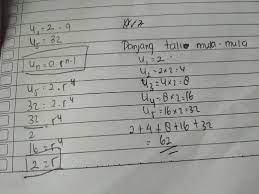 U₁ = 2 = a
U₅ = 32
Uₙ = a.rⁿ⁻¹
U₅ = 2.r⁴
32 = 2.r⁴
32 = r⁴
2
16 = r⁴
2 = r
Panjang tali mula-mula
U₁ = 2
U₂ = 2x2 = 4
U₃ = 4x2 = 8
U₄ = 8x2 = 16
U₅ = 16x2 = 32
2+4+8+16+32
= 62